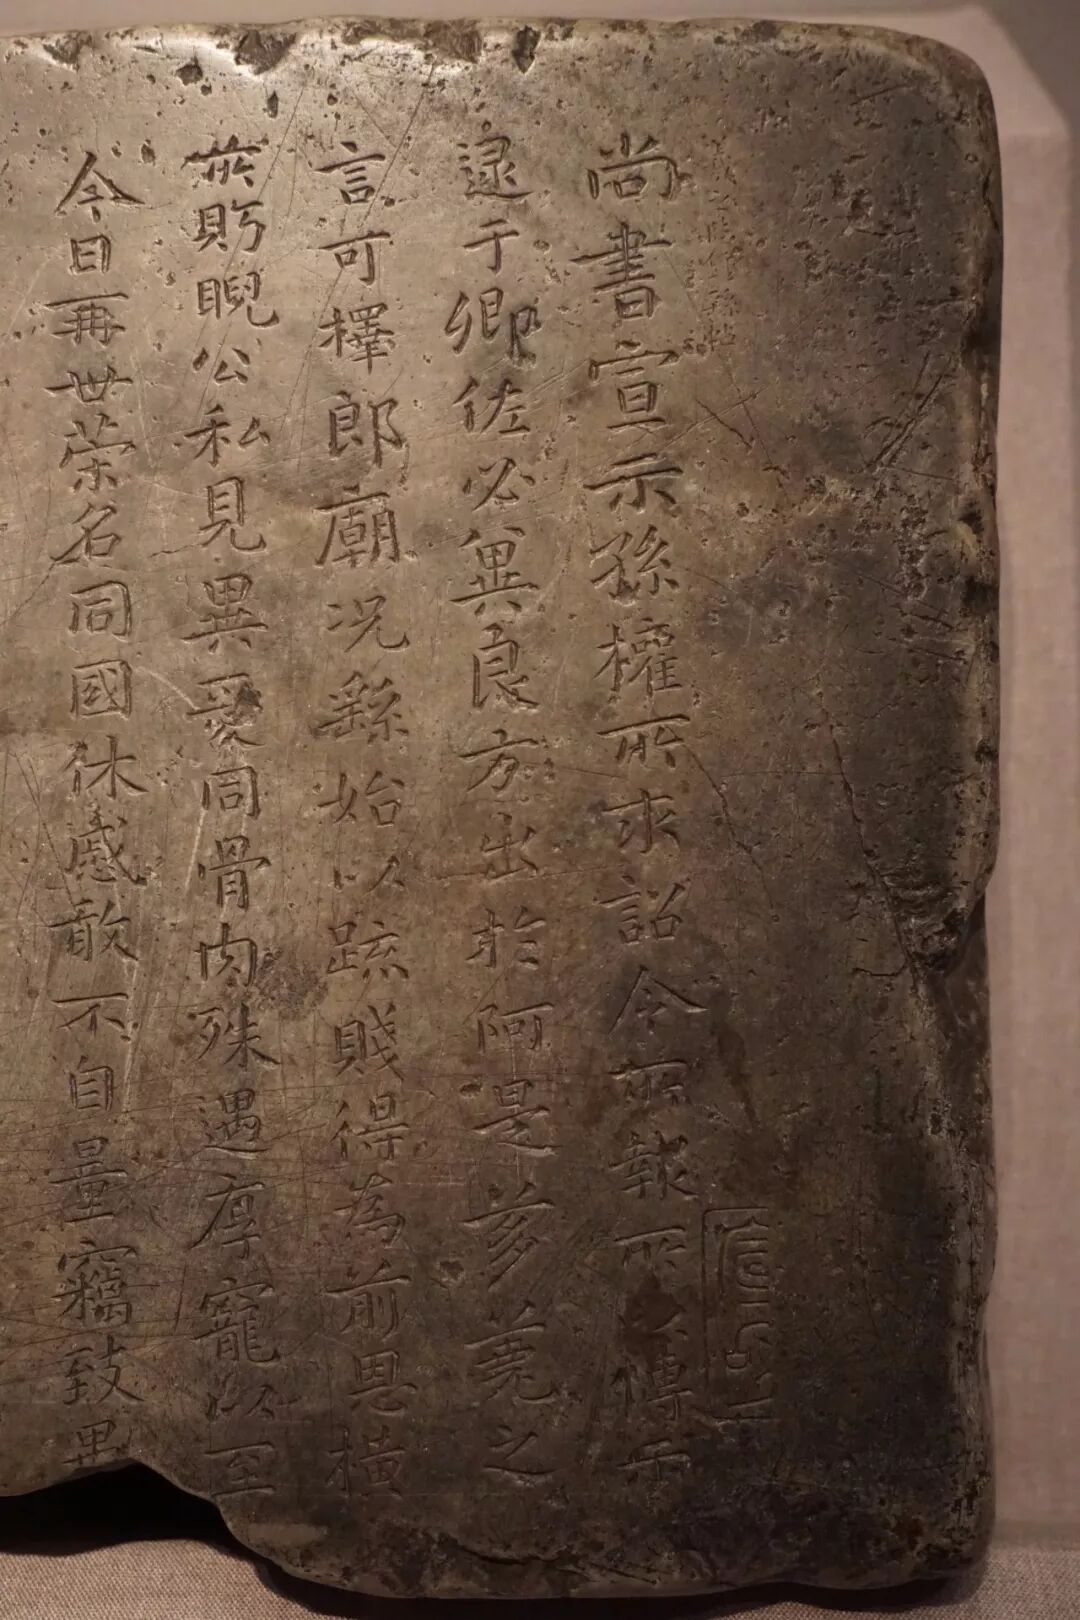 尚書宣示孫權所求詔令所報所以博示
逮于卿佐必異良方出於阿是芻蕘之
言可擇郎廟況繇始以疏賤得為前恩橫
所盻睨公私見異愛同骨肉殊遇厚寵以至
今日再世榮名同國休慼敢不自量竊致愚